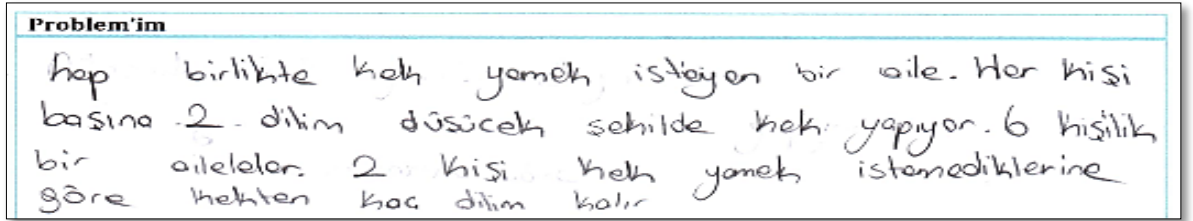 Problem'im
hep birlikte kek yemek isteyen bir aile. Her kişi
başına 2 dilim düşücek şekilde kek yapıyor. 6 kişilik
bir aileler. 2 kişi kek yemek istemediklerine
göre kekten kaç dilim kalır